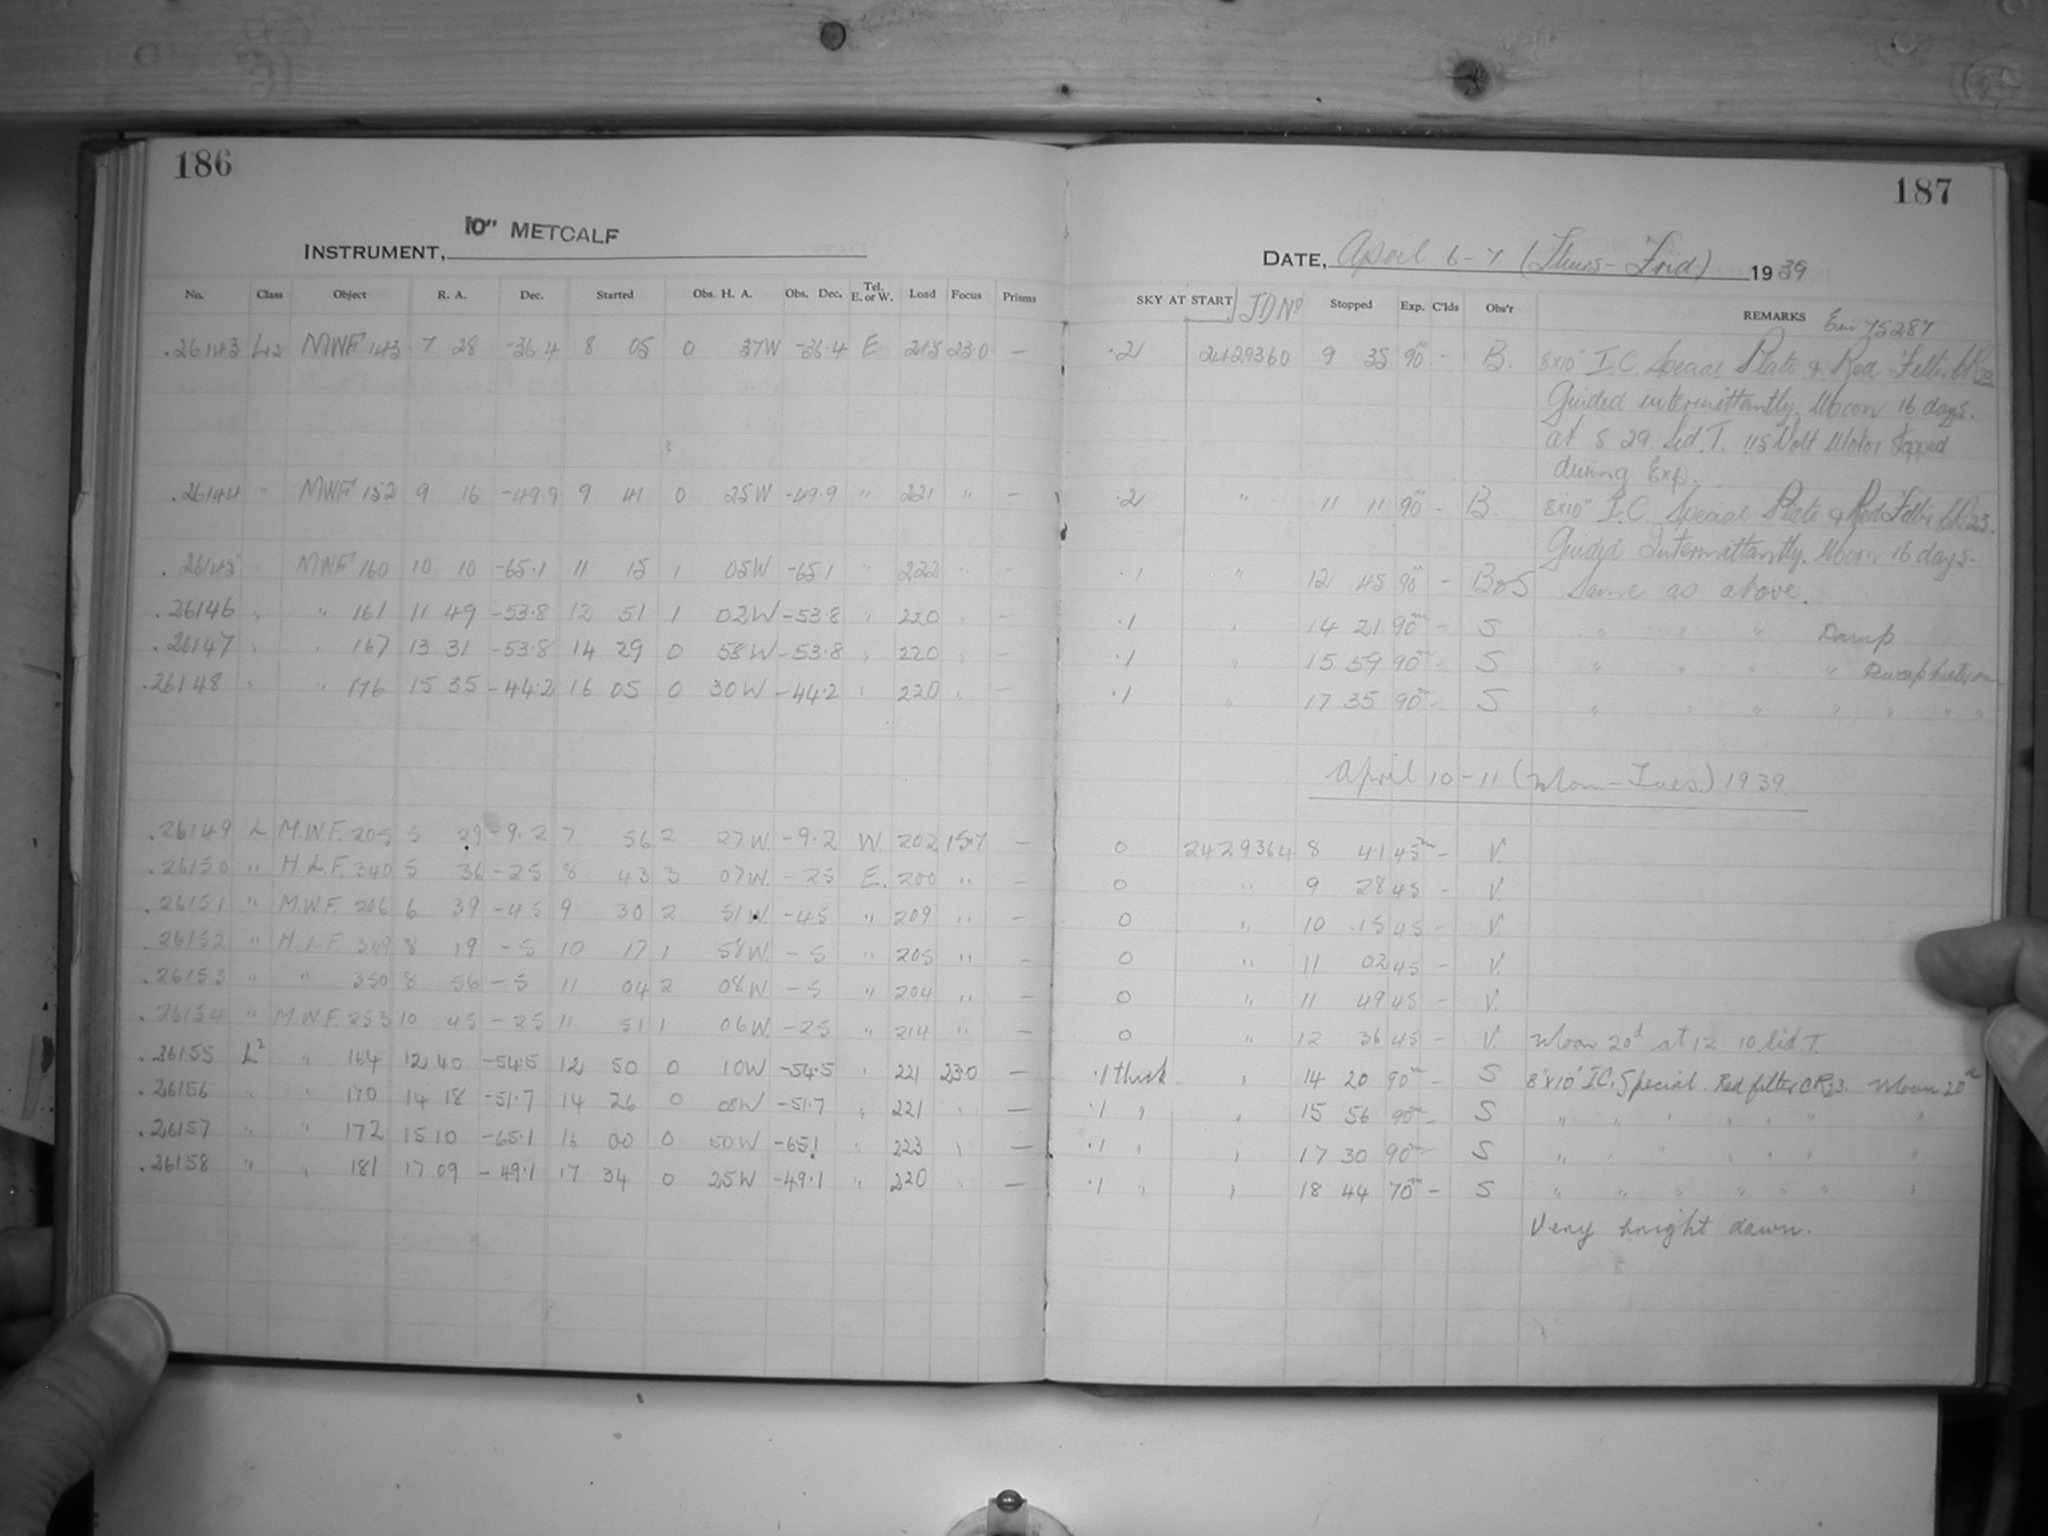 186
10" METCALF
INSTRUMENT,
No. Class Object R. A. Dec. Started Obs. H. A. Obs. Dec. Tel. E. or W. Load Focus Prisms
.26143 L2 MWF 143 7 28 -36.4 8 05 0 37W -36.4 E 218 23.0 —
.26144 " MWF 152 9 16 -49.9 9 41 0 25W -49.9 " 221 " —
.26145 " MWF 160 10 10 -65.1 11 15 1 05W -65.1 " 222 " —
.26146 " " 161 11 49 -53.8 12 51 1 02W -53.8 " 220 " —
.26147 " " 167 13 31 -53.8 14 29 0 58W -53.8 " 220 " —
.26148 " " 176 15 35 -44.2 16 05 0 30W -44.2 " 220 " —
.26149 L M.W.F. 205 5 29 -9.2 7 56 2 27W. -9.2 W. 202 15.7 —
.26150 " H.L.F. 340 5 36 -25 8 43 3 07W. -25 E. 200 " —
.26151 " M.W.F. 206 6 39 -45 9 30 2 51W. -45 " 209 " —
.26152 " H.L.F. 349 8 19 -5 10 17 1 58W. -5 " 205 " —
.26153 " " 350 8 56 -5 11 04 2 08W. -5 " 204 " —
.26154 " M.W.F. 253 10 45 -25 11 51 1 06W. -25 " 214 " —
.26155 L2 " 164 12 40 -54.5 12 50 0 10W -54.5 " 221 23.0 —
.26156 " " 170 14 18 -51.7 14 26 0 08W -51.7 " 221 " —
.26157 " " 172 15 10 -65.1 16 00 0 50W -65.1 " 223 " —
.26158 " " 181 17 09 -49.1 17 34 0 25W -49.1 " 220 " —
187
DATE, April 6-7 (Thurs-Frid) 1939
SKY AT START JD No Stopped Exp. C'lds Obs'r REMARKS Em 75287
.2 2429360 9 35 90m - B. 8x10" I.C. Special Plate & Red Filter
Guided intermittantly. Moon 16 days.
at 8 29 Sid. T. 115 Volt Motor stopped
during Exp.
.2 " 11 11 90m - B. 8x10" I.C. Special Plate & Red Filter CR 23.
Guided Intermittantly. Moon 16 days.
.1 " 12 45 90m - B&S Same as above.
.1 " 14 21 90m - S " " " Damp
.1 " 15 59 90m - S " " " "
.1 " 17 35 90m - S " " " " " " "
April 10-11 (Mon.-Tues.) 1939.
0 2429364 8 41 45m - V.
0 " 9 28 45 - V.
0 " 10 15 45 - V.
0 " 11 02 45 - V.
0 " 11 49 45 - V.
0 " 12 36 45 - V. Moon 20d at 12 10 Sid T.
.1 thick " 14 20 90m - S 8"x10" I.C. Special. Red filter CR 23. Moon 20d
.1 " " 15 56 90m - S " " " " " " "
.1 " " 17 30 90m - S " " " " " " "
.1 " " 18 44 70m - S " " " " " " "
Very bright dawn.